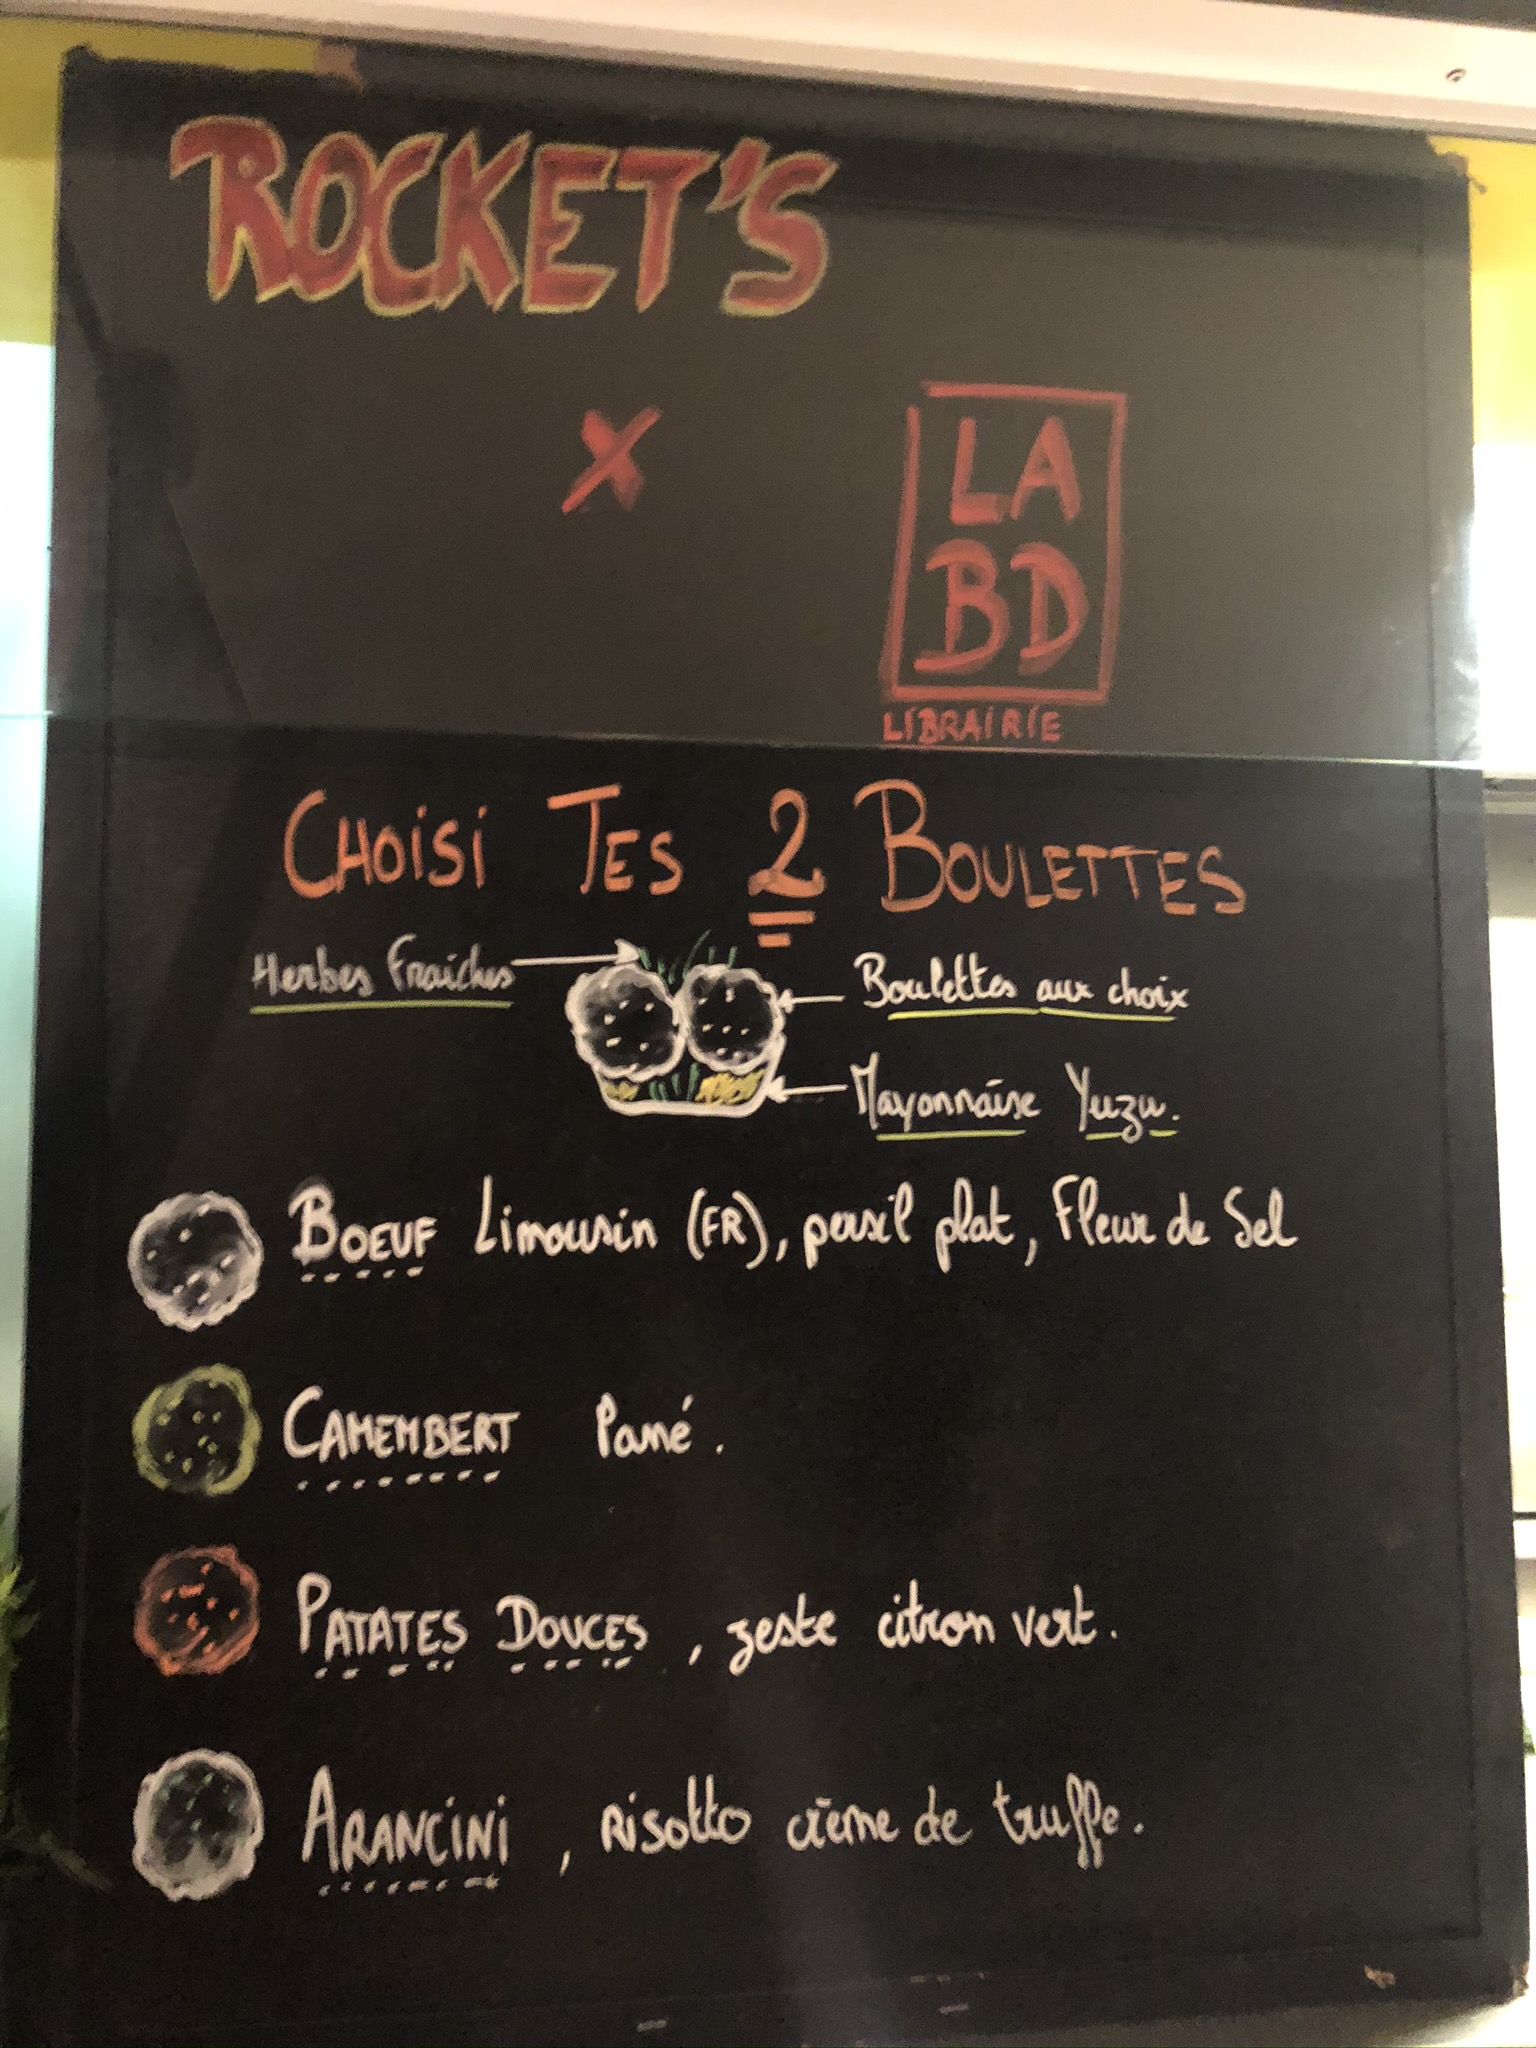 ROCKET'S
X
LA
BD
LIBRAIRIE
CHOISI TES 2 BOULETTES
Herbes Fraiches
Boulettes aux choix
Mayonnaise Yuzu.
BOEUF Limousin (FR), persil plat, Fleur de Sel
CAMEMBERT Pané.
PATATES DOUCES, zeste citron vert.
ARANCINI, risotto crème de truffe.